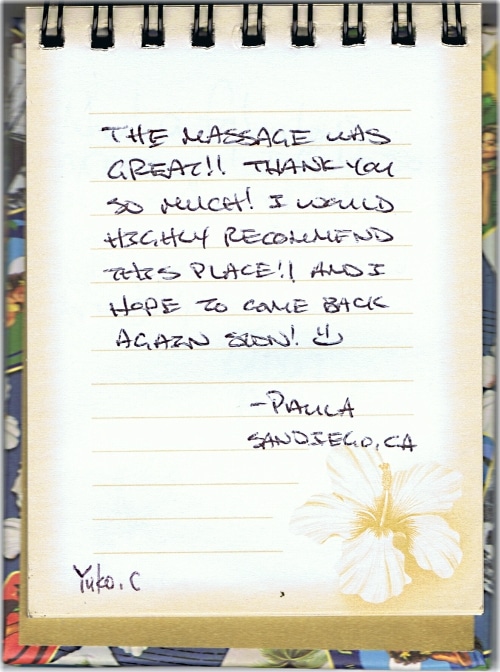 THE MASSAGE WAS
GREAT!! THANK YOU
SO MUCH! I WOULD
HIGHLY RECOMMEND
THIS PLACE!! AND I
HOPE TO COME BACK
AGAIN SOON! ツ
-PAULA
SANDIEGO, CA
Yuko. C